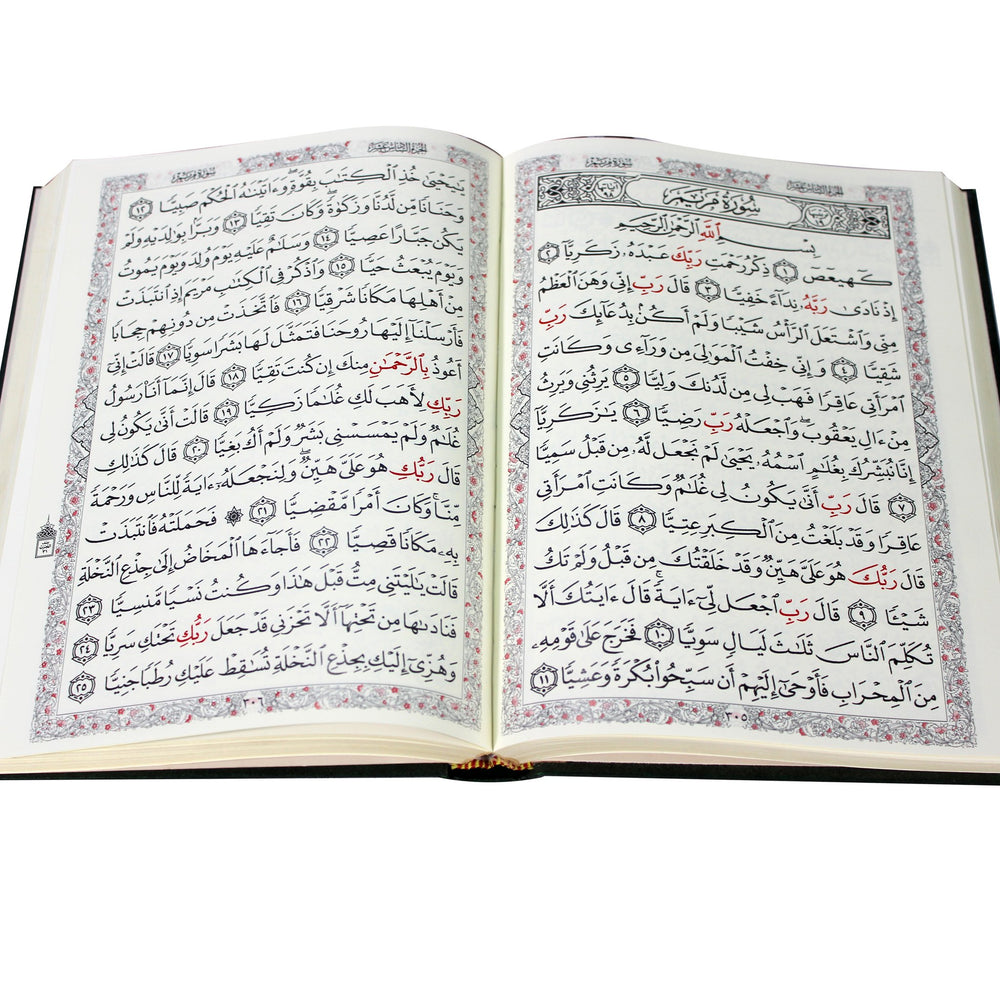 سُورَةُ مَرْيَمَ
الجزء السادس عشر
سُورَةُ مَرْيَمَ
بِسْمِ ٱللَّهِ ٱلرَّحْمَٰنِ ٱلرَّحِيمِ
كٓهيعٓصٓ ١ ذِكْرُ رَحْمَتِ رَبِّكَ عَبْدَهُۥ زَكَرِيَّآ ٢
إِذْ نَادَىٰ رَبَّهُۥ نِدَآءً خَفِيًّا ٣ قَالَ رَبِّ إِنِّى وَهَنَ ٱلْعَظْمُ
مِنِّى وَٱشْتَعَلَ ٱلرَّأْسُ شَيْبًا وَلَمْ أَكُنۢ بِدُعَآئِكَ رَبِّ
شَقِيًّا ٤ وَإِنِّى خِفْتُ ٱلْمَوَٰلِىَ مِن وَرَآءِى وَكَانَتِ
ٱمْرَأَتِى عَاقِرًا فَهَبْ لِى مِن لَّدُنكَ وَلِيًّا ٥ يَرِثُنِى وَيَرِثُ
مِنْ ءَالِ يَعْقُوبَ ۖ وَٱجْعَلْهُ رَبِّ رَضِيًّا ٦ يَٰزَكَرِيَّآ
إِنَّا نُبَشِّرُكَ بِغُلَٰمٍ ٱسْمُهُۥ يَحْيَىٰ لَمْ نَجْعَل لَّهُۥ مِن قَبْلُ سَمِيًّا
٧ قَالَ رَبِّ أَنَّىٰ يَكُونُ لِى غُلَٰمٌ وَكَانَتِ ٱمْرَأَتِى
عَاقِرًا وَقَدْ بَلَغْتُ مِنَ ٱلْكِبَرِ عِتِيًّا ٨ قَالَ كَذَٰلِكَ
قَالَ رَبُّكَ هُوَ عَلَىَّ هَيِّنٌ وَقَدْ خَلَقْتُكَ مِن قَبْلُ وَلَمْ تَكُ
شَيْـًٔا ٩ قَالَ رَبِّ ٱجْعَل لِّىٓ ءَايَةً ۚ قَالَ ءَايَتُكَ أَلَّا
تُكَلِّمَ ٱلنَّاسَ ثَلَٰثَ لَيَالٍ سَوِيًّا ١٠ فَخَرَجَ عَلَىٰ قَوْمِهِۦ
مِنَ ٱلْمِحْرَابِ فَأَوْحَىٰٓ إِلَيْهِمْ أَن سَبِّحُوا۟ بُكْرَةً وَعَشِيًّا ١١
٣٠٥
الجزء السادس عشر
سُورَةُ مَرْيَمَ
يَٰيَحْيَىٰ خُذِ ٱلْكِتَٰبَ بِقُوَّةٍ ۖ وَءَاتَيْنَٰهُ ٱلْحُكْمَ صَبِيًّا ١٢
وَحَنَانًا مِّن لَّدُنَّا وَزَكَوٰةً ۖ وَكَانَ تَقِيًّا ١٣ وَبَرًّۢا بِوَٰلِدَيْهِ وَلَمْ
يَكُن جَبَّارًا عَصِيًّا ١٤ وَسَلَٰمٌ عَلَيْهِ يَوْمَ وُلِدَ وَيَوْمَ يَمُوتُ
وَيَوْمَ يُبْعَثُ حَيًّا ١٥ وَٱذْكُرْ فِى ٱلْكِتَٰبِ مَرْيَمَ إِذِ ٱنتَبَذَتْ
مِنْ أَهْلِهَا مَكَانًا شَرْقِيًّا ١٦ فَٱتَّخَذَتْ مِن دُونِهِمْ حِجَابًا
فَأَرْسَلْنَآ إِلَيْهَا رُوحَنَا فَتَمَثَّلَ لَهَا بَشَرًا سَوِيًّا ١٧ قَالَتْ إِنِّىٓ
أَعُوذُ بِٱلرَّحْمَٰنِ مِنكَ إِن كُنتَ تَقِيًّا ١٨ قَالَ إِنَّمَآ أَنَا۠ رَسُولُ
رَبِّكِ لِأَهَبَ لَكِ غُلَٰمًا زَكِيًّا ١٩ قَالَتْ أَنَّىٰ يَكُونُ لِى
غُلَٰمٌ وَلَمْ يَمْسَسْنِى بَشَرٌ وَلَمْ أَكُ بَغِيًّا ٢٠ قَالَ كَذَٰلِكِ
قَالَ رَبُّكِ هُوَ عَلَىَّ هَيِّنٌ ۖ وَلِنَجْعَلَهُۥٓ ءَايَةً لِّلنَّاسِ وَرَحْمَةً
مِّنَّا ۚ وَكَانَ أَمْرًا مَّقْضِيًّا ٢١ ۞ فَحَمَلَتْهُ فَٱنتَبَذَتْ
بِهِۦ مَكَانًا قَصِيًّا ٢٢ فَأَجَآءَهَا ٱلْمَخَاضُ إِلَىٰ جِذْعِ ٱلنَّخْلَةِ
قَالَتْ يَٰلَيْتَنِى مِتُّ قَبْلَ هَٰذَا وَكُنتُ نَسْيًا مَّنسِيًّا ٢٣
فَنَادَىٰهَا مِن تَحْتِهَآ أَلَّا تَحْزَنِى قَدْ جَعَلَ رَبُّكِ تَحْتَكِ سَرِيًّا ٢٤
وَهُزِّىٓ إِلَيْكِ بِجِذْعِ ٱلنَّخْلَةِ تُسَٰقِطْ عَلَيْكِ رُطَبًا جَنِيًّا ٢٥
٣٠٦